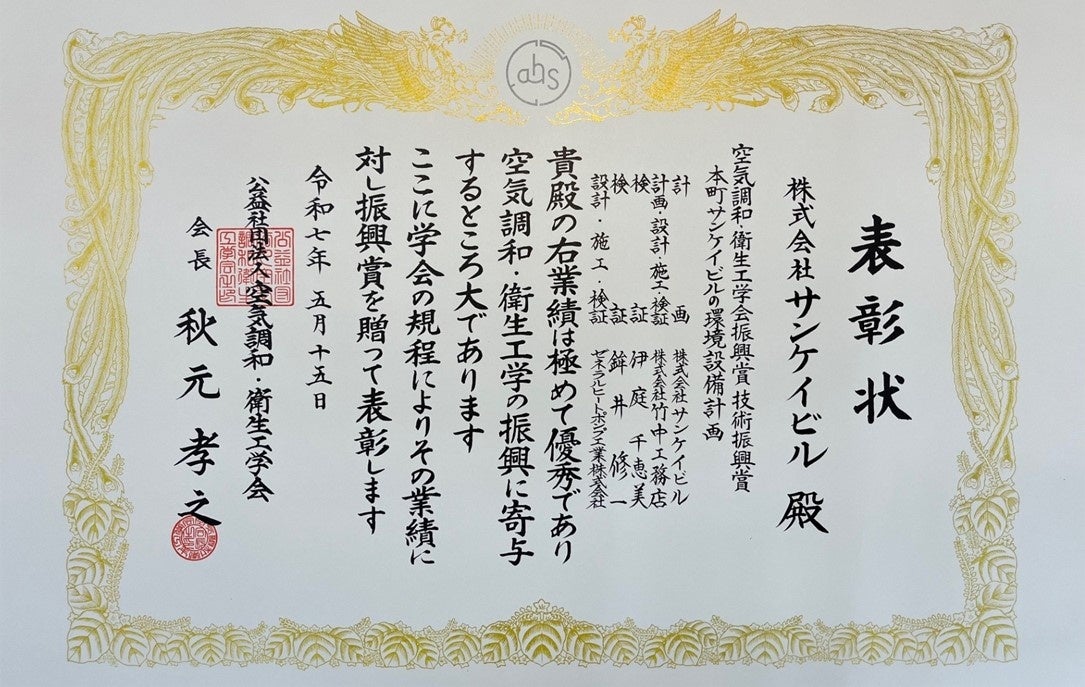 ahs
表彰状
株式会社サンケイビル 殿
空気調和・衛生工学会振興賞 技術振興賞
本町サンケイビルの環境設備計画
計画 株式会社サンケイビル
計画・設計・施工・検証 株式会社竹中工務店
検証 伊庭千恵美
検証 鉾井修一
設計・施工・検証 ゼネラルヒートポンプ工業株式会社
貴殿の右業績は極めて優秀であり
空気調和・衛生工学の振興に寄与
するところ大であります
ここに学会の規程によりその業績に
対し振興賞を贈って表彰します
令和七年 五月十五日
公益社団法人 空気調和・衛生工学会
会長 秋元孝之